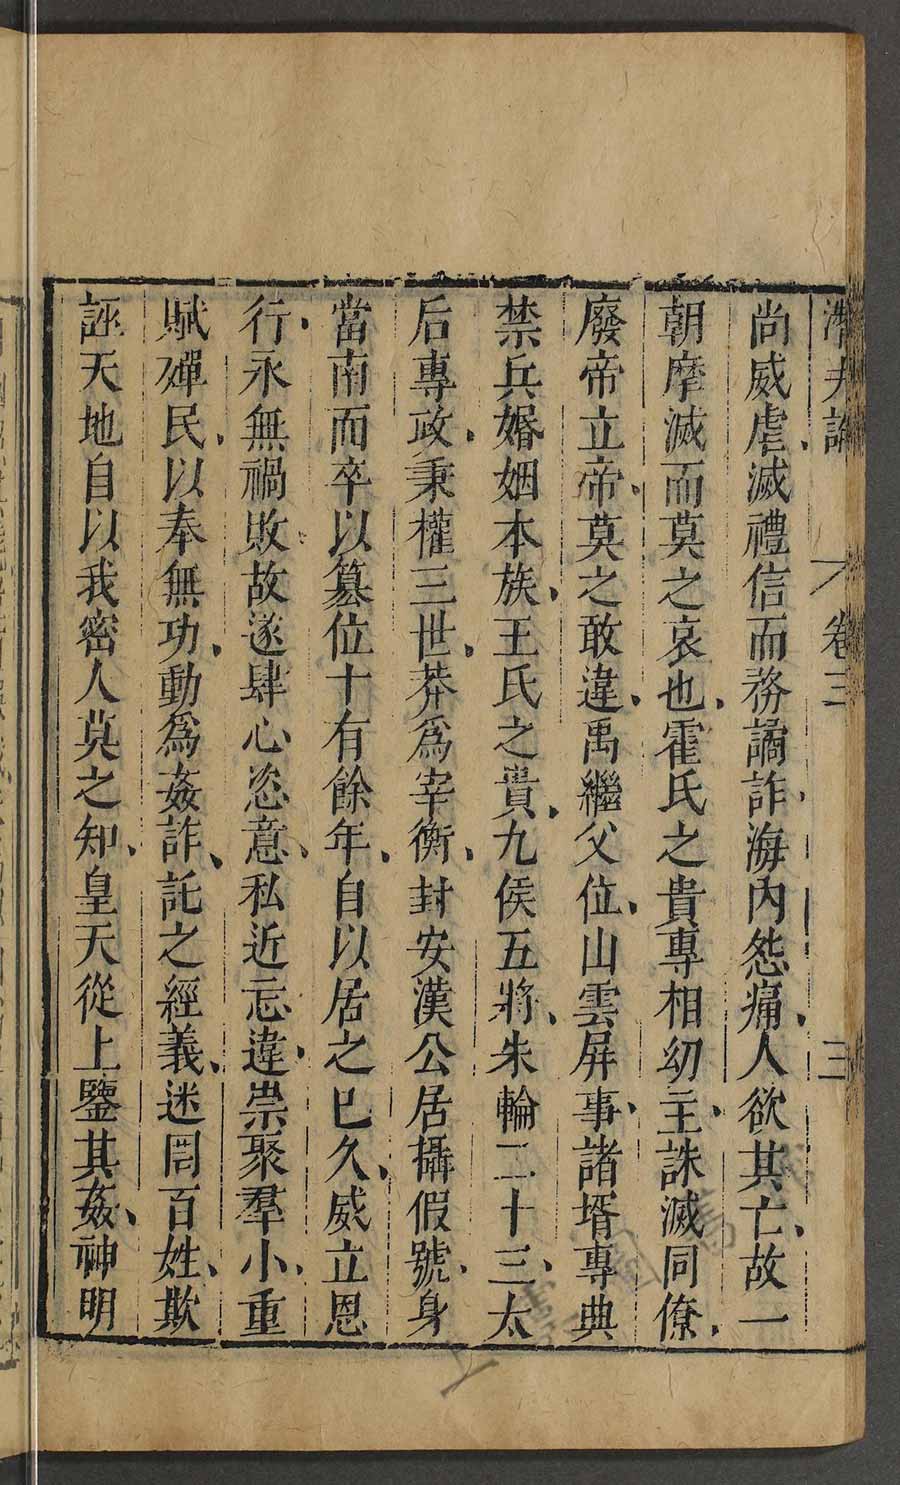 潛夫論 卷三 三
尚威虐、滅禮信而務譎詐、海內怨痛、人欲其亡、故一
朝摩滅而莫之哀也、霍氏之貴專相幼主、誅滅同僚、
廢帝立帝、莫之敢違、禹繼父位、山雲屏事、諸壻專典
禁兵婚姻本族、王氏之貴、九侯五將、朱輪二十三、太
后專政、秉權三世、莽爲宰衡、封安漢公居攝假號、身
當南面卒以篡位十有餘年、自以居之已久、威立恩
行、永無禍敗故遂肆心恣意、私近忘違、崇聚羣小、重
賦殫民、以奉無功、動爲姦詐、託之經義、迷罔百姓、欺
誣天地自以我密人莫之知、皇天從上鑒其姦、神明